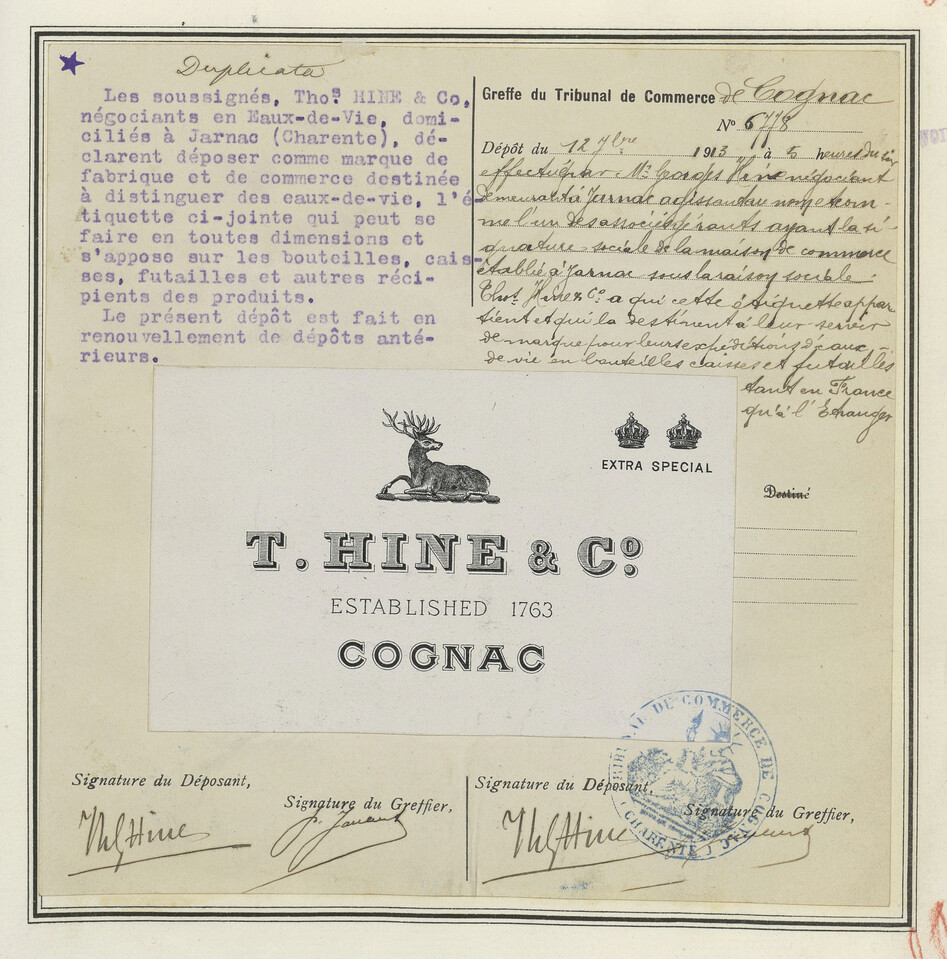 Duplicata
Les soussignés, Thos. HINE & Co,
négociants en Eaux-de-Vie, domi-
ciliés à Jarnac (Charente), dé-
clarent déposer comme marque de
fabrique et de commerce destinée
à distinguer des eaux-de-vie, l'é-
tiquette ci-jointe qui peut se
faire en toutes dimensions et
s'appose sur les bouteilles, cais-
ses, futailles et autres réci-
pients des produits.
Le présent dépôt est fait en
renouvellement de dépôts anté-
rieurs.
Greffe du Tribunal de Commerce de Cognac
No 6778
Dépôt du 12 7bre 1913 à 5 heures du soir
effectué par Mr Georges Hine négociant
demeurant à Jarnac agissant au nom et com-
me l'un des associés gérants ayant la si-
gnature sociale de la maison de commerce
établie à Jarnac sous la raison sociale
Thos. Hine & Co. a qui cette étiquette appar
tient et qui la destinent à leur servir
de marque pour leurs expéditions d'eaux-
de-vie en bouteilles caisses et futailles
tant en France
qu'à l'Etranger
EXTRA SPECIAL
Destiné
T. HINE & Co.
ESTABLISHED 1763
COGNAC
TRIBUNAL DE COMMERCE DE COGNAC
(CHARENTE)
Signature du Déposant,
Signature du Greffier,
Signature du Déposant,
Signature du Greffier,
Hine
Hine